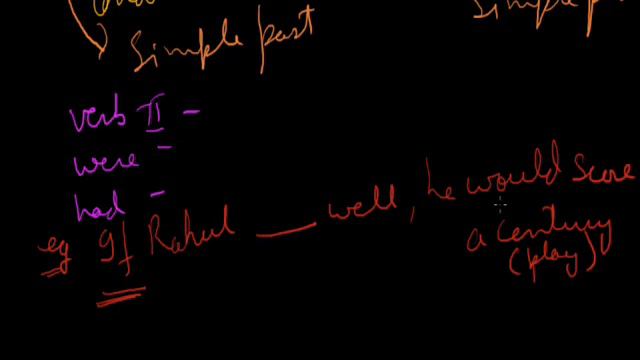 Simple past
Simple p
verb II -
were -
had -
eg If Rahul ___ well, he would score
a century
(play)